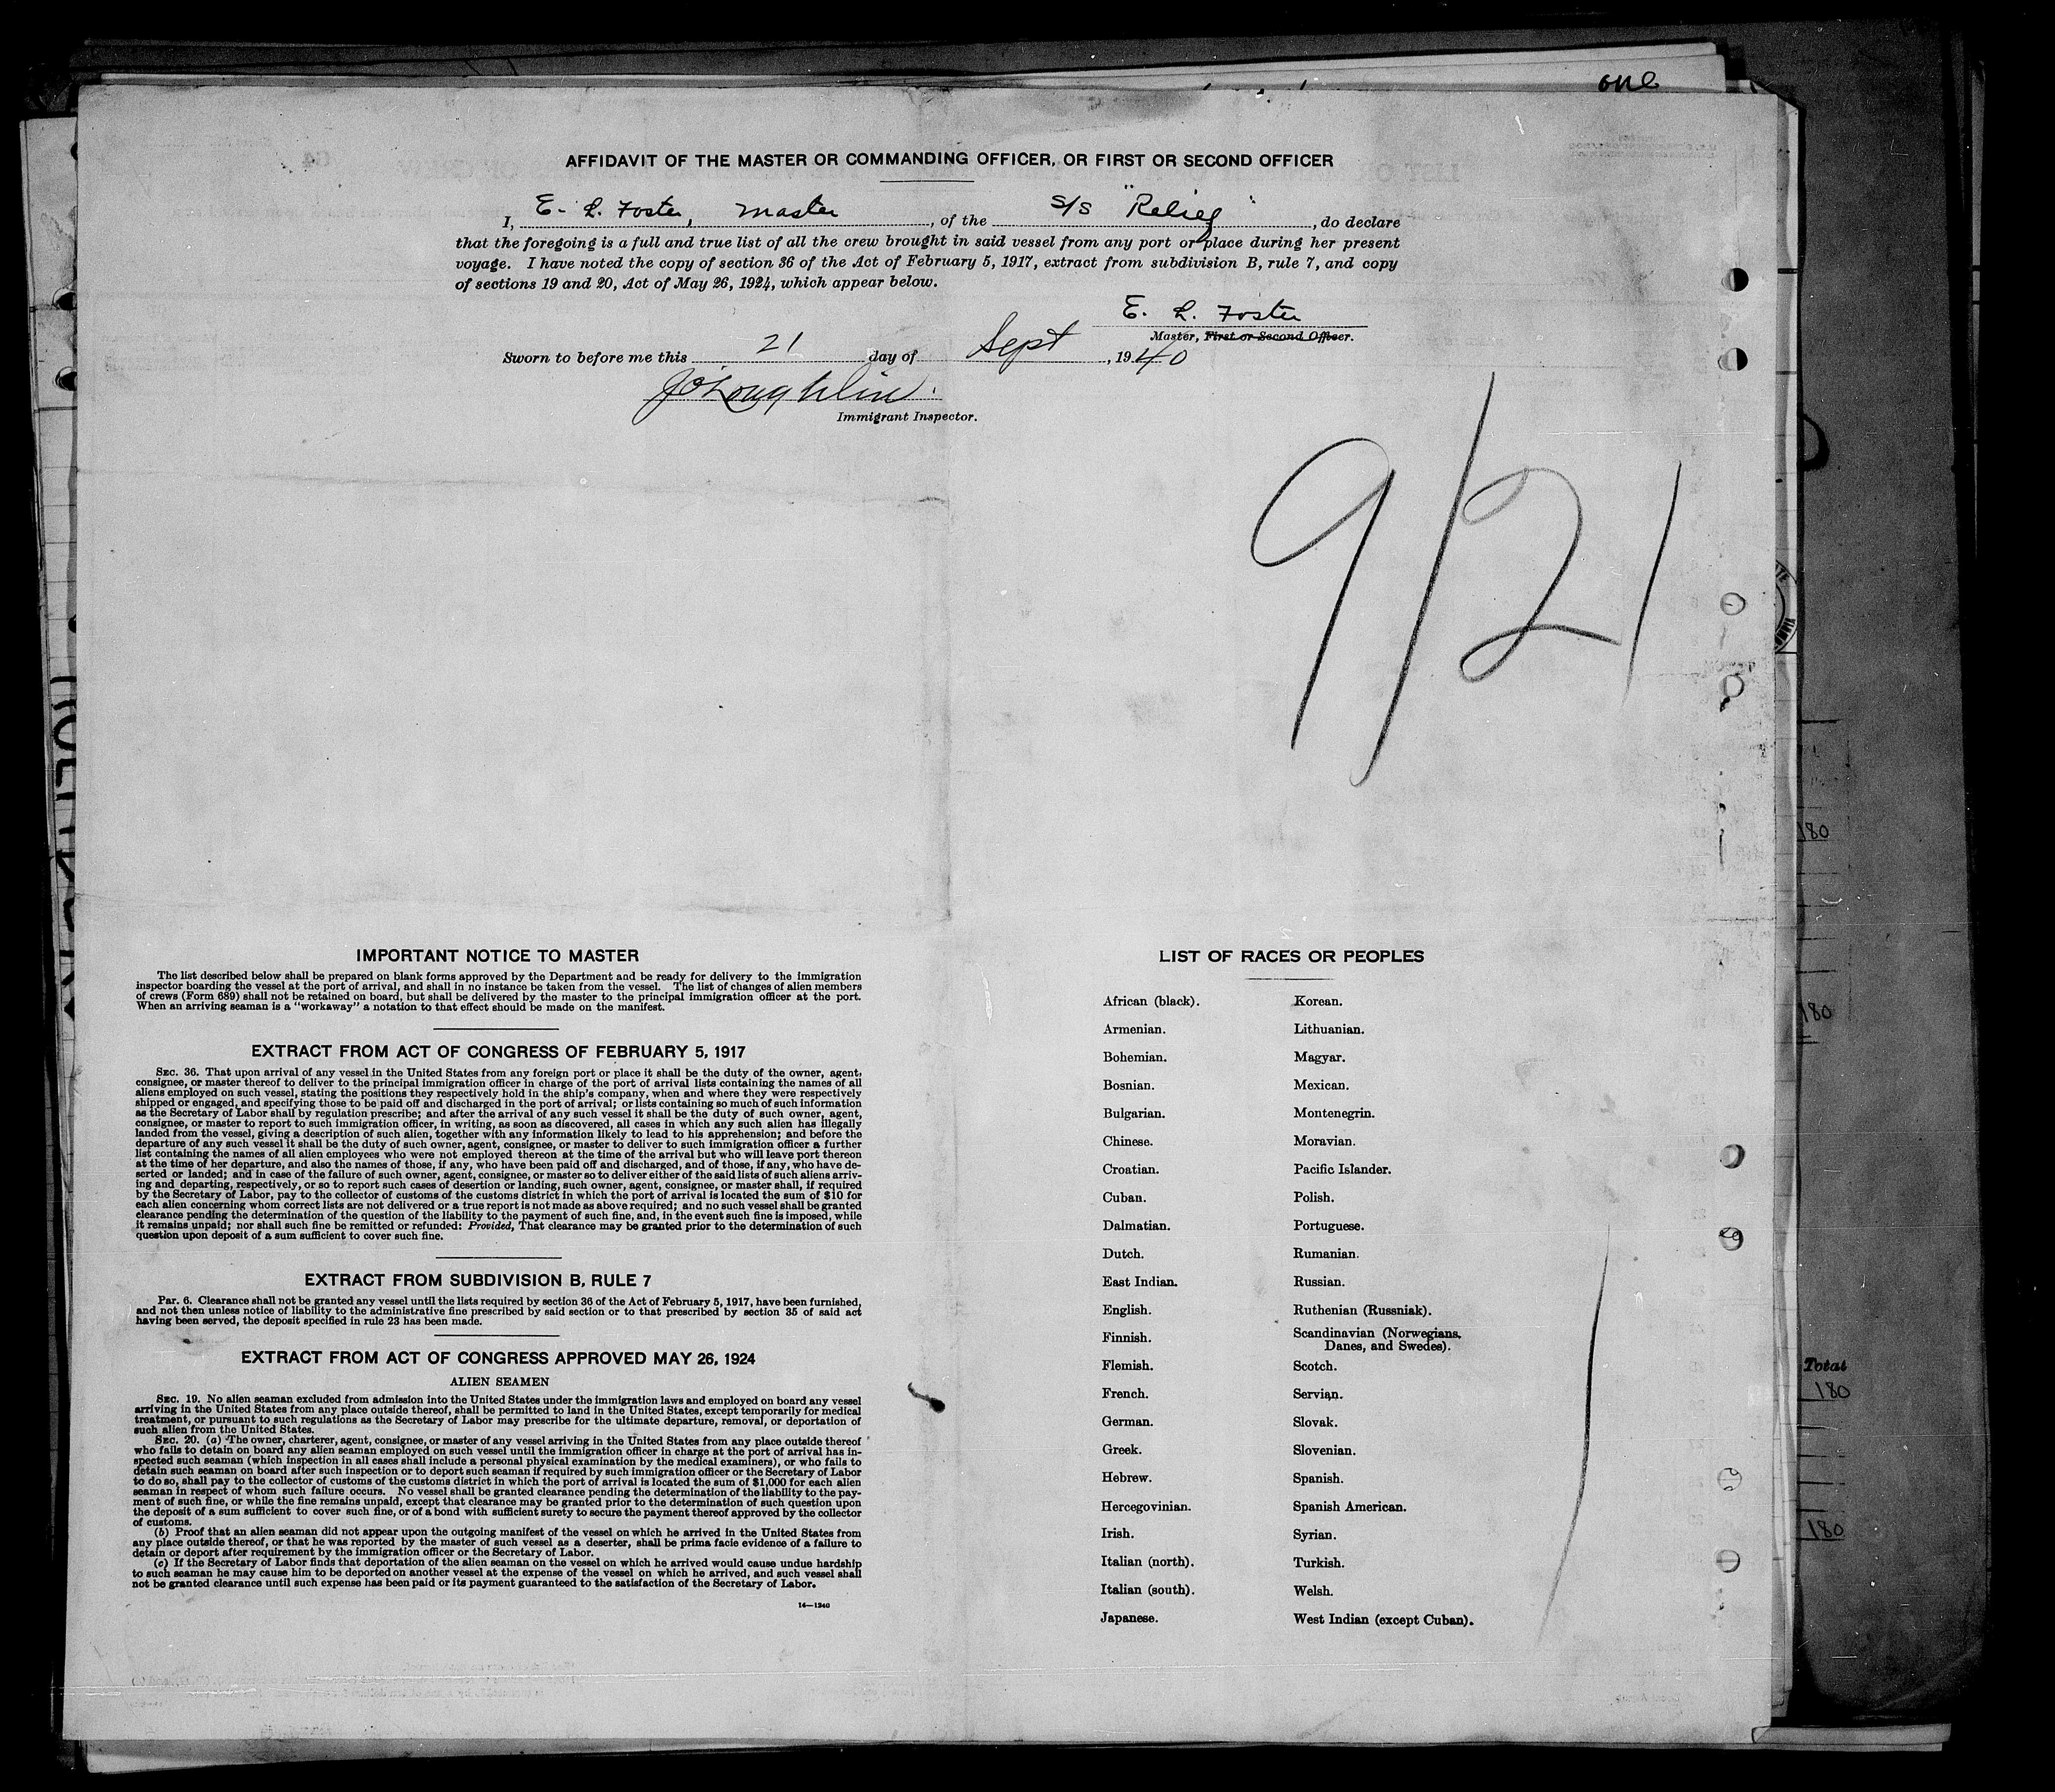 one
AFFIDAVIT OF THE MASTER OR COMMANDING OFFICER, OR FIRST OR SECOND OFFICER
I, E. L. Foster, Master, of the S/S "Relief", do declare
that the foregoing is a full and true list of all the crew brought in said vessel from any port or place during her present
voyage. I have noted the copy of section 36 of the Act of February 5, 1917, extract from subdivision B, rule 7, and copy
of sections 19 and 20, Act of May 26, 1924, which appear below.
E. L. Foster
Master, First or Second Officer.
Sworn to before me this 21 day of Sept, 1940
J O'Loughlin
Immigrant Inspector.
9/21
IMPORTANT NOTICE TO MASTER
The list described below shall be prepared on blank forms approved by the Department and be ready for delivery to the immigration
inspector boarding the vessel at the port of arrival, and shall in no instance be taken from the vessel. The list of changes of alien members
of crews (Form 689) shall not be retained on board, but shall be delivered by the master to the principal immigration officer at the port.
When an arriving seaman is a "workaway" a notation to that effect should be made on the manifest.
EXTRACT FROM ACT OF CONGRESS OF FEBRUARY 5, 1917
SEC. 36. That upon arrival of any vessel in the United States from any foreign port or place it shall be the duty of the owner, agent,
consignee, or master thereof to deliver to the principal immigration officer in charge of the port of arrival lists containing the names of all
aliens employed on such vessel, stating the positions they respectively hold in the ship's company, when and where they were respectively
shipped or engaged, and specifying those to be paid off and discharged in the port of arrival; or lists containing so much of such information
as the Secretary of Labor shall by regulation prescribe; and after the arrival of any such vessel it shall be the duty of such owner, agent,
consignee, or master to report to such immigration officer, in writing, as soon as discovered, all cases in which any such alien has illegally
landed from the vessel, giving a description of such alien, together with any information likely to lead to his apprehension; and before the
departure of any such vessel it shall be the duty of such owner, agent, consignee, or master to deliver to such immigration officer a further
list containing the names of all alien employees who were not employed thereon at the time of the arrival but who will leave port thereon
at the time of her departure, and also the names of those, if any, who have been paid off and discharged, and of those, if any, who have de-
serted or landed; and in case of the failure of such owner, agent, consignee, or master so to deliver either of the said lists of such aliens arriv-
ing and departing, respectively, or so to report such cases of desertion or landing, such owner, agent, consignee, or master shall, if required
by the Secretary of Labor, pay to the collector of customs of the customs district in which the port of arrival is located the sum of $10 for
each alien concerning whom correct lists are not delivered or a true report is not made as above required; and no such vessel shall be granted
clearance pending the determination of the question of the liability to the payment of such fine, and, in the event such fine is imposed, while
it remains unpaid; nor shall such fine be remitted or refunded: Provided, That clearance may be granted prior to the determination of such
question upon deposit of a sum sufficient to cover such fine.
EXTRACT FROM SUBDIVISION B, RULE 7
Par. 6. Clearance shall not be granted any vessel until the lists required by section 36 of the Act of February 5, 1917, have been furnished,
and not then unless notice of liability to the administrative fine prescribed by said section or to that prescribed by section 35 of said act
having been served, the deposit specified in rule 23 has been made.
EXTRACT FROM ACT OF CONGRESS APPROVED MAY 26, 1924
ALIEN SEAMEN
SEC. 19. No alien seaman excluded from admission into the United States under the immigration laws and employed on board any vessel
arriving in the United States from any place outside thereof, shall be permitted to land in the United States, except temporarily for medical
treatment, or pursuant to such regulations as the Secretary of Labor may prescribe for the ultimate departure, removal, or deportation of
such alien from the United States.
SEC. 20. (a) The owner, charterer, agent, consignee, or master of any vessel arriving in the United States from any place outside thereof
who fails to detain on board any alien seaman employed on such vessel until the immigration officer in charge at the port of arrival has in-
spected such seaman (which inspection in all cases shall include a personal physical examination by the medical examiners), or who fails to
detain such seaman on board after such inspection or to deport such seaman if required by such immigration officer or the Secretary of Labor
to do so, shall pay to the collector of customs of the customs district in which the port of arrival is located the sum of $1,000 for each alien
seaman in respect of whom such failure occurs. No vessel shall be granted clearance pending the determination of the liability to the pay-
ment of such fine, or while the fine remains unpaid, except that clearance may be granted prior to the determination of such question upon
the deposit of a sum sufficient to cover such fine, or of a bond with sufficient surety to secure the payment thereof approved by the collector
of customs.
(b) Proof that an alien seaman did not appear upon the outgoing manifest of the vessel on which he arrived in the United States from
any place outside thereof, or that he was reported by the master of such vessel as a deserter, shall be prima facie evidence of a failure to
detain or deport after requirement by the immigration officer or the Secretary of Labor.
(c) If the Secretary of Labor finds that deportation of the alien seaman on the vessel on which he arrived would cause undue hardship
to such seaman he may cause him to be deported on another vessel at the expense of the vessel on which he arrived, and such vessel shall
not be granted clearance until such expense has been paid or its payment guaranteed to the satisfaction of the Secretary of Labor.
14—1240
LIST OF RACES OR PEOPLES
African (black). Korean.
Armenian. Lithuanian.
Bohemian. Magyar.
Bosnian. Mexican.
Bulgarian. Montenegrin.
Chinese. Moravian.
Croatian. Pacific Islander.
Cuban. Polish.
Dalmatian. Portuguese.
Dutch. Rumanian.
East Indian. Russian.
English. Ruthenian (Russniak).
Finnish. Scandinavian (Norwegians,
Danes, and Swedes).
Flemish. Scotch.
French. Servian.
German. Slovak.
Greek. Slovenian.
Hebrew. Spanish.
Hercegovinian. Spanish American.
Irish. Syrian.
Italian (north). Turkish.
Italian (south). Welsh.
Japanese. West Indian (except Cuban).
180
180
Total
180
180